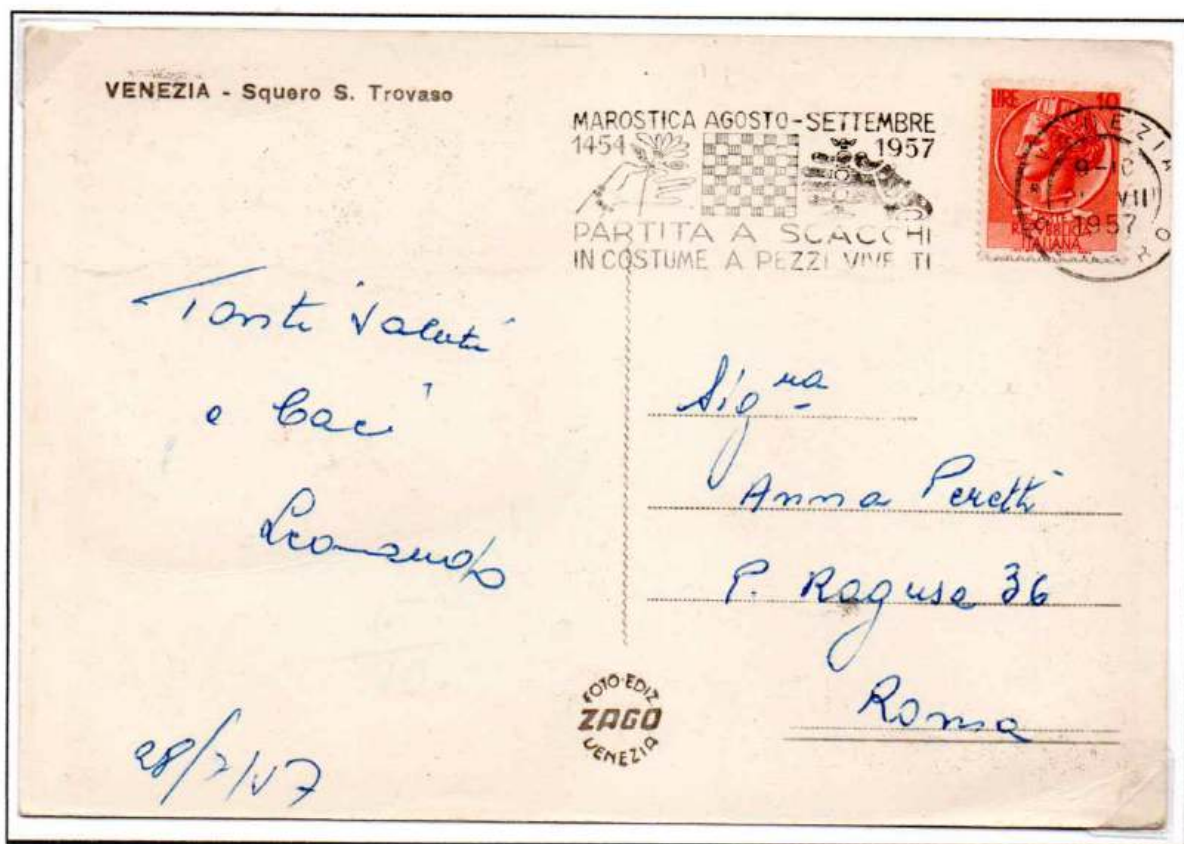 VENEZIA - Squero S. Trovaso
MAROSTICA AGOSTO - SETTEMBRE
1454 1957
PARTITA A SCACCHI
IN COSTUME A PEZZI VIVE TI
LIRE 10
REPUBBLICA
ITALIANA
VENEZIA
9-10
VII
1957
Tanti saluti
e baci
Leonardo
28/7/57
Sigra
Anna Peretti
P. Ragusa 36
Roma
FOTO-EDIZ
ZAGO
VENEZIA